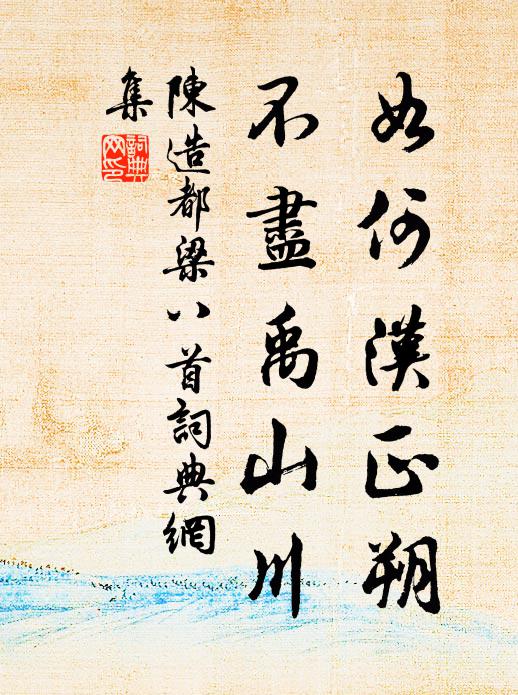 如何漢正朔
不盡禹山川
陳造都梁八首詞典網
集
詞典
网印